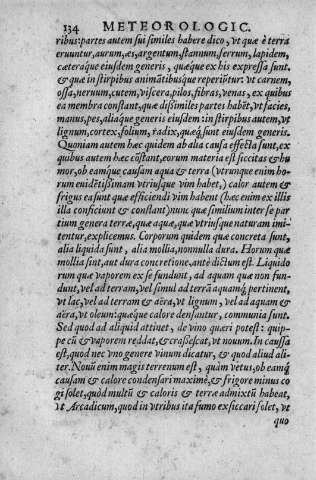 134 METEOROLOGIC.
ribus: partes autem sui similes habere dico, vt quæ è terra
eruuntur, aurum, æs, argentum, stannum, ferrum, lapidem,
cæteraque eiusdem generis, quæque ex his expressa sunt.
& quæ in stirpibus animātibusque reperiūtur: vt carnem,
ossa, neruum, cutem, viscera, pilos, fibras, venas, ex quibus
ea membra constant, quæ dissimiles partes habēt, vt facies,
manus, pes, aliaque generis eiusdem: in stirpibus autem, vt
lignum, cortex, folium, radix, quæq; sunt eiusdem generis.
Quoniam autem hæc quidem ab alia causa effecta sunt, ex
quibus autem hæc cōstant, eorum materia est siccitas & hu
mor, ob eamque causam aqua & terra (vtrunque enim ho
rum euidētissimam vtriusque vim habet,) calor autem &
frigus ea sunt quæ efficiendi vim habent (hæc enim ex illis
illa conficiunt & constant) nunc quæ similium inter se par
tium genera terræ, quæ aquæ, quæ vtriusque naturam imi-
tentur, explicemus. Corporum quidem quæ concreta sunt,
alia liquida sunt, alia mollia, nonnulla dura. Horum quæ
mollia sint, aut dura concretione, antè dictum est. Liquido
rum quæ vaporem ex se fundunt, ad aquam quæ non fun-
dunt, vel ad terram, vel simul ad terrā aquamq; pertinent,
vt lac, vel ad terram & aëra, vt lignum, vel ad aquam &
aëra, vt oleum: quæque calore densantur, communia sunt.
Sed quod ad aliquid attinet, de vino quæri potest: quip-
pe cū & vaporem reddat, & crassescat, vt nouum. In caussa
est, quod nec vno genere vinum dicatur, & quod aliud ali-
ter. Nouū enim magis terrenum est, quàm vetus, ob eamq;
causam & calore condensari maximè, & frigore minus co
gi solet, quòd multū & caloris & terræ admixtū habeat,
vt Arcadicum, quod in vtribus ita fumo exsiccari solet, vt
quo